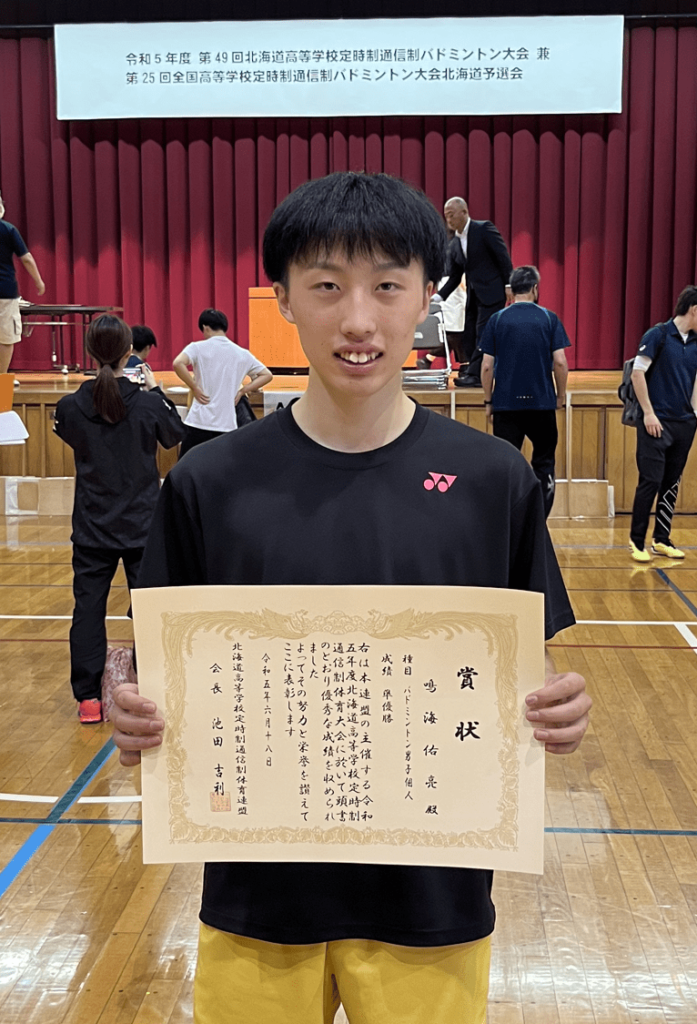 令和５年度 第49回北海道高等学校定時制通信制バドミントン大会 兼
第25回全国高等学校定時制通信制バドミントン大会北海道予選会
賞状
鳴海佑亮殿
種目 バドミントン男子個人
成績 準優勝
右は本連盟の主催する令和
五年度北海道高等学校定時制
通信制体育大会に於いて頭書
のとおり優秀な成績を収められ
ました
よってその努力と栄誉を讃えて
ここに表彰します
令和五年六月十八日
北海道高等学校定時制通信制体育連盟
会長 池田吉利